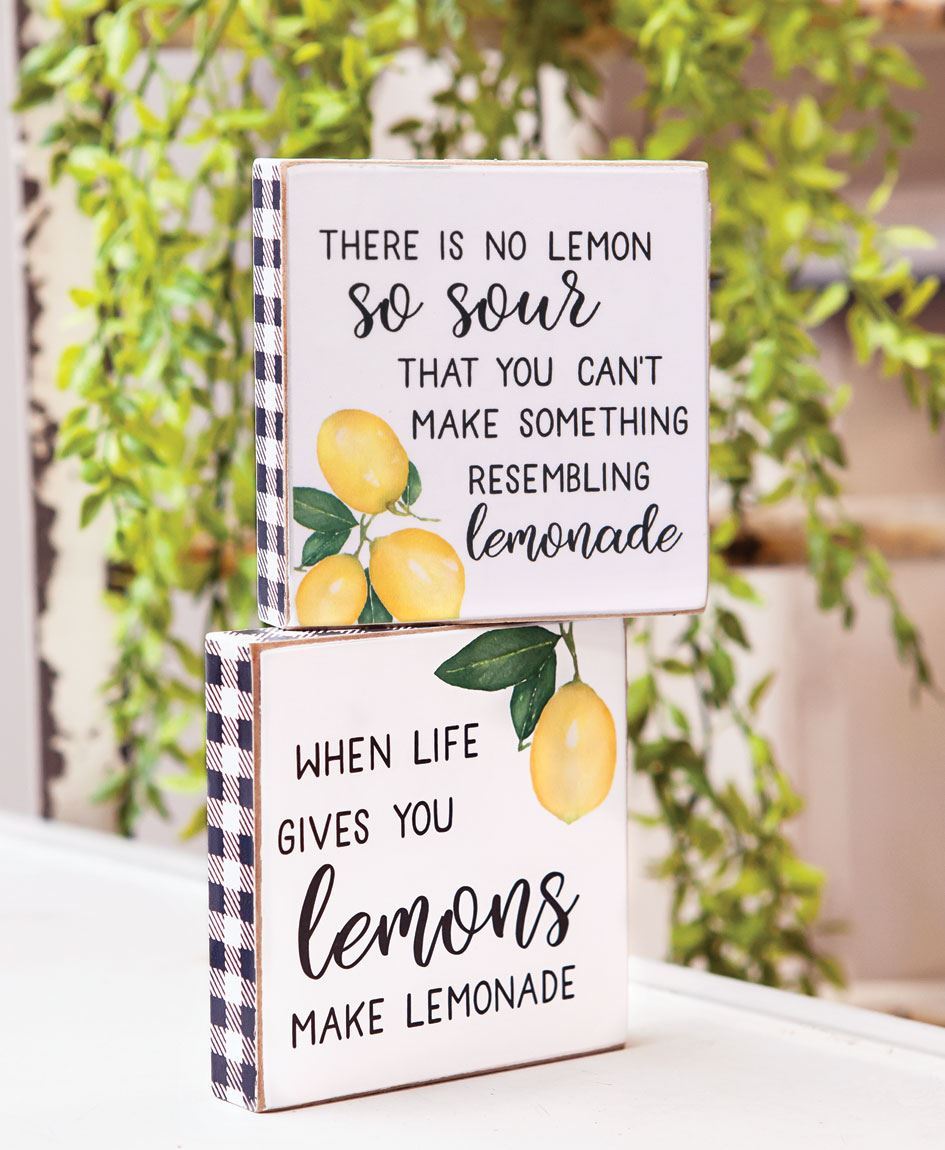 THERE IS NO LEMON
so sour
THAT YOU CAN'T
MAKE SOMETHING
RESEMBLING
lemonade
WHEN LIFE
GIVES YOU
lemons
MAKE LEMONADE